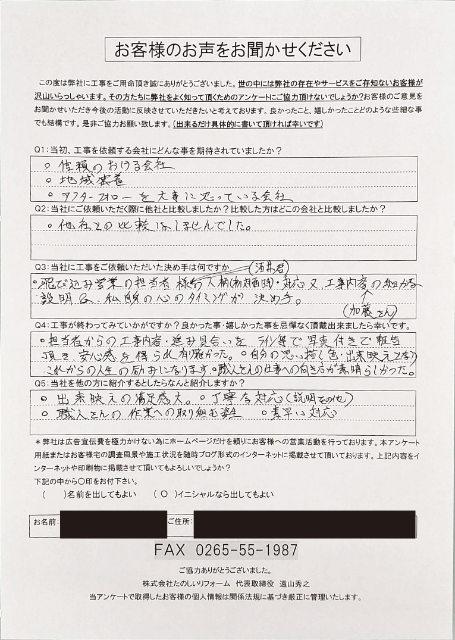 お客様のお声をお聞かせください
この度は弊社に工事をご用命頂き誠にありがとうございました。世の中には弊社の存在やサービスをご存知ないお客様が
沢山いらっしゃいます。その方たちに弊社をよく知って頂くためのアンケートにご協力頂けないでしょうか?お客様のご意見を
お聞かせいただき今後の活動に反映させていただきたいと考えております。良かったこと、嬉しかったことどのような些細な事
でも結構です。是非ご協力お願い致します。(出来るだけ具体的に書いて頂ければ幸いです)
Q1:当初、工事を依頼する会社にどんな事を期待されていましたか?
○ 信頼のおける会社
○ 地域密着
○ アフターフォローを大事に思っている会社
Q2:当社にご依頼いただく際に他社と比較しましたか?比較した方はどこの会社と比較しましたか?
・他社との比較はしませんでした。
Q3:当社に工事をご依頼いただいた決め手は何ですか
・飛び込み営業の担当者様の人柄 ・対応又、工事内容の細かな
説明 私 の心のタイミングが決め手。
(加藤さん)
Q4:工事が終わってみていかがですか?良かった事・嬉しかった事を忌憚なく頂戴出来ましたら幸いです。
・担当者からの工事内容・進み具合いをライン等で写真付きで報告
頂き、安心感を得られ有難かった。○自分の思い描く色・出来映えで
これからの人生の励みになります。○職人さんの仕事への向き方が素晴らしかった。
Q5:当社を他の方に紹介するとしたらなんと紹介しますか?
・出来映えの満足感大。○丁寧な対応(説明その他)
○ 職人さんの作業への取り組む姿 ○素早い対応
*弊社は広告宣伝費を極力かけない為にホームページだけを頼りにお客様への営業活動を行っております。本アンケート
用紙またはお客様宅の調査風景や施工状況を随時ブログ形式のインターネットに掲載させて頂いております。上記内容をイ
ンターネットや印刷物に掲載させて頂いてもよろしいでしょうか?
下記の中から〇印をお付下さい。
( )名前を出してもよい (○)イニシャルなら出してもよい
お名前: ご住所:
FAX 0265-55-1987
ご協力ありがとうございました。
株式会社たのしいリフォーム 代表取締役 遠山秀之
当アンケートで取得したお客様の個人情報は関係法規に基づき厳正に管理いたします。